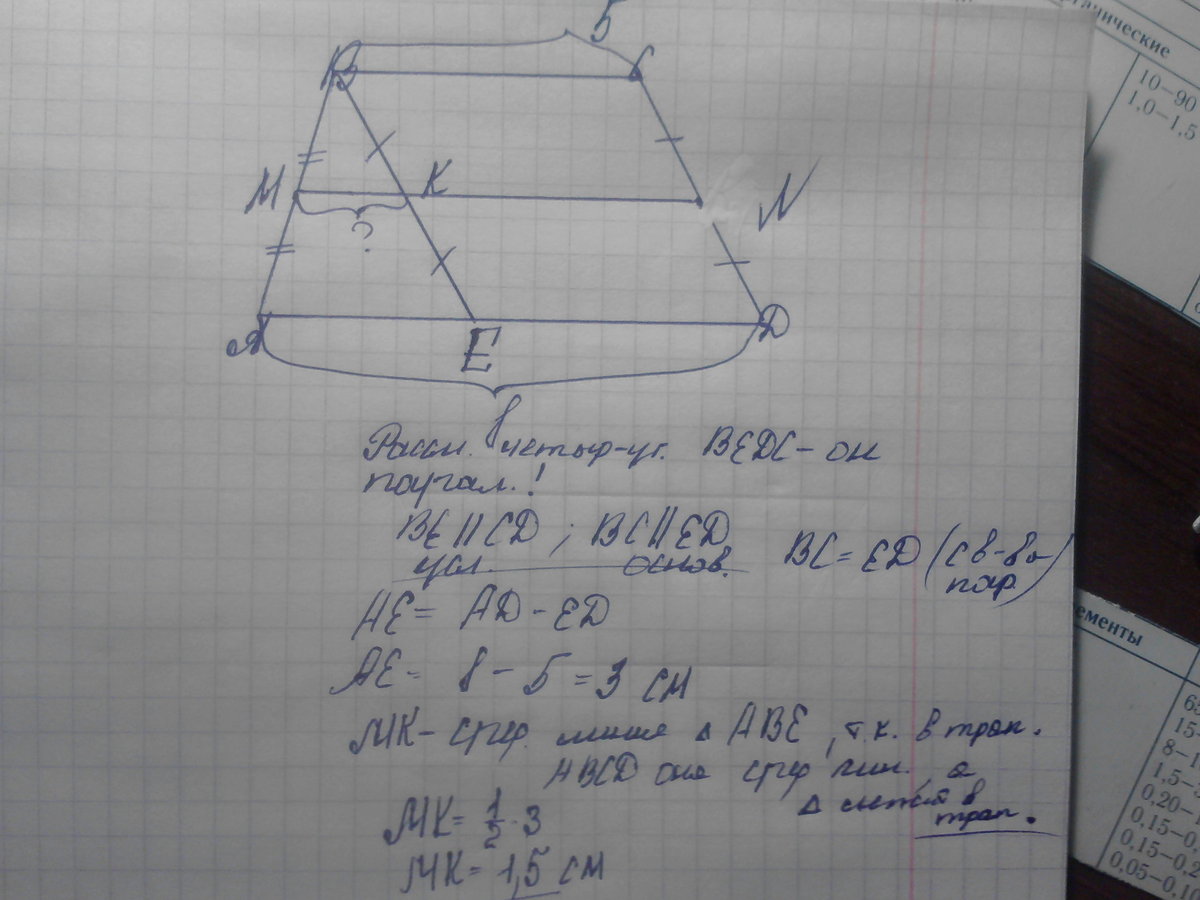 5
В С
М К N
?
А Е D
8
Рассм. четыр-уг. BEDC - он
паралл.!
BE || CD ; BC || ED
усл. основ.
BC = ED (св-во
пар.)
AE = AD - ED
AE = 8 - 5 = 3 см
МК - сред. линия △ ABE, т.к. в трап.
ABCD она сред. лин., а
△ лежит в
трап.
МК = 1/2 · 3
МК = 1,5 см
10–90
1,0–1,5
8–1
1,5–
0,20–
0,15–0,
0,15–0,2
0,05–0,10